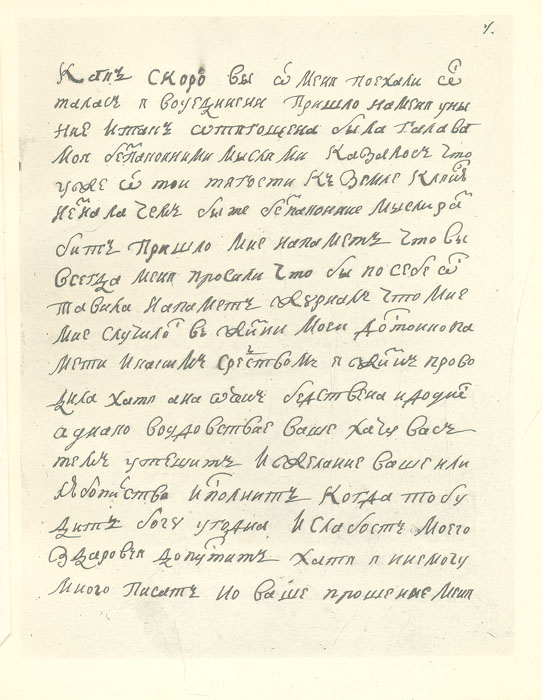 7.
Какъ скоро вы ѿ меня поехали ѡс
талась я воуединени пришло наменя уны
ние итакъ ѡтягощена была галава
моя беспакоиними мыслями казалось что
уже ѿ тои тягости къ земле клянюсь
незнала чемъ бы те беспакоиние мысли раз
битъ пришло мне напаметъ что вы
всегда меня просили что бы по себе ѡс
тавила напаметъ журналъ что мне
мне случилось въ жизни моеи достоинога
мети средствомъ я жизнь прово
дила хатя ана бедственна идодне
аднако воудовствие ваше хачу васъ
темъ утешитъ ижелание ваше или
любопитство исполнитъ когда то бу
дитъ богу угодна ислабостъ моего
здаровья допуститъ хатя я инемогу
много писатъ но ваше прошение меня